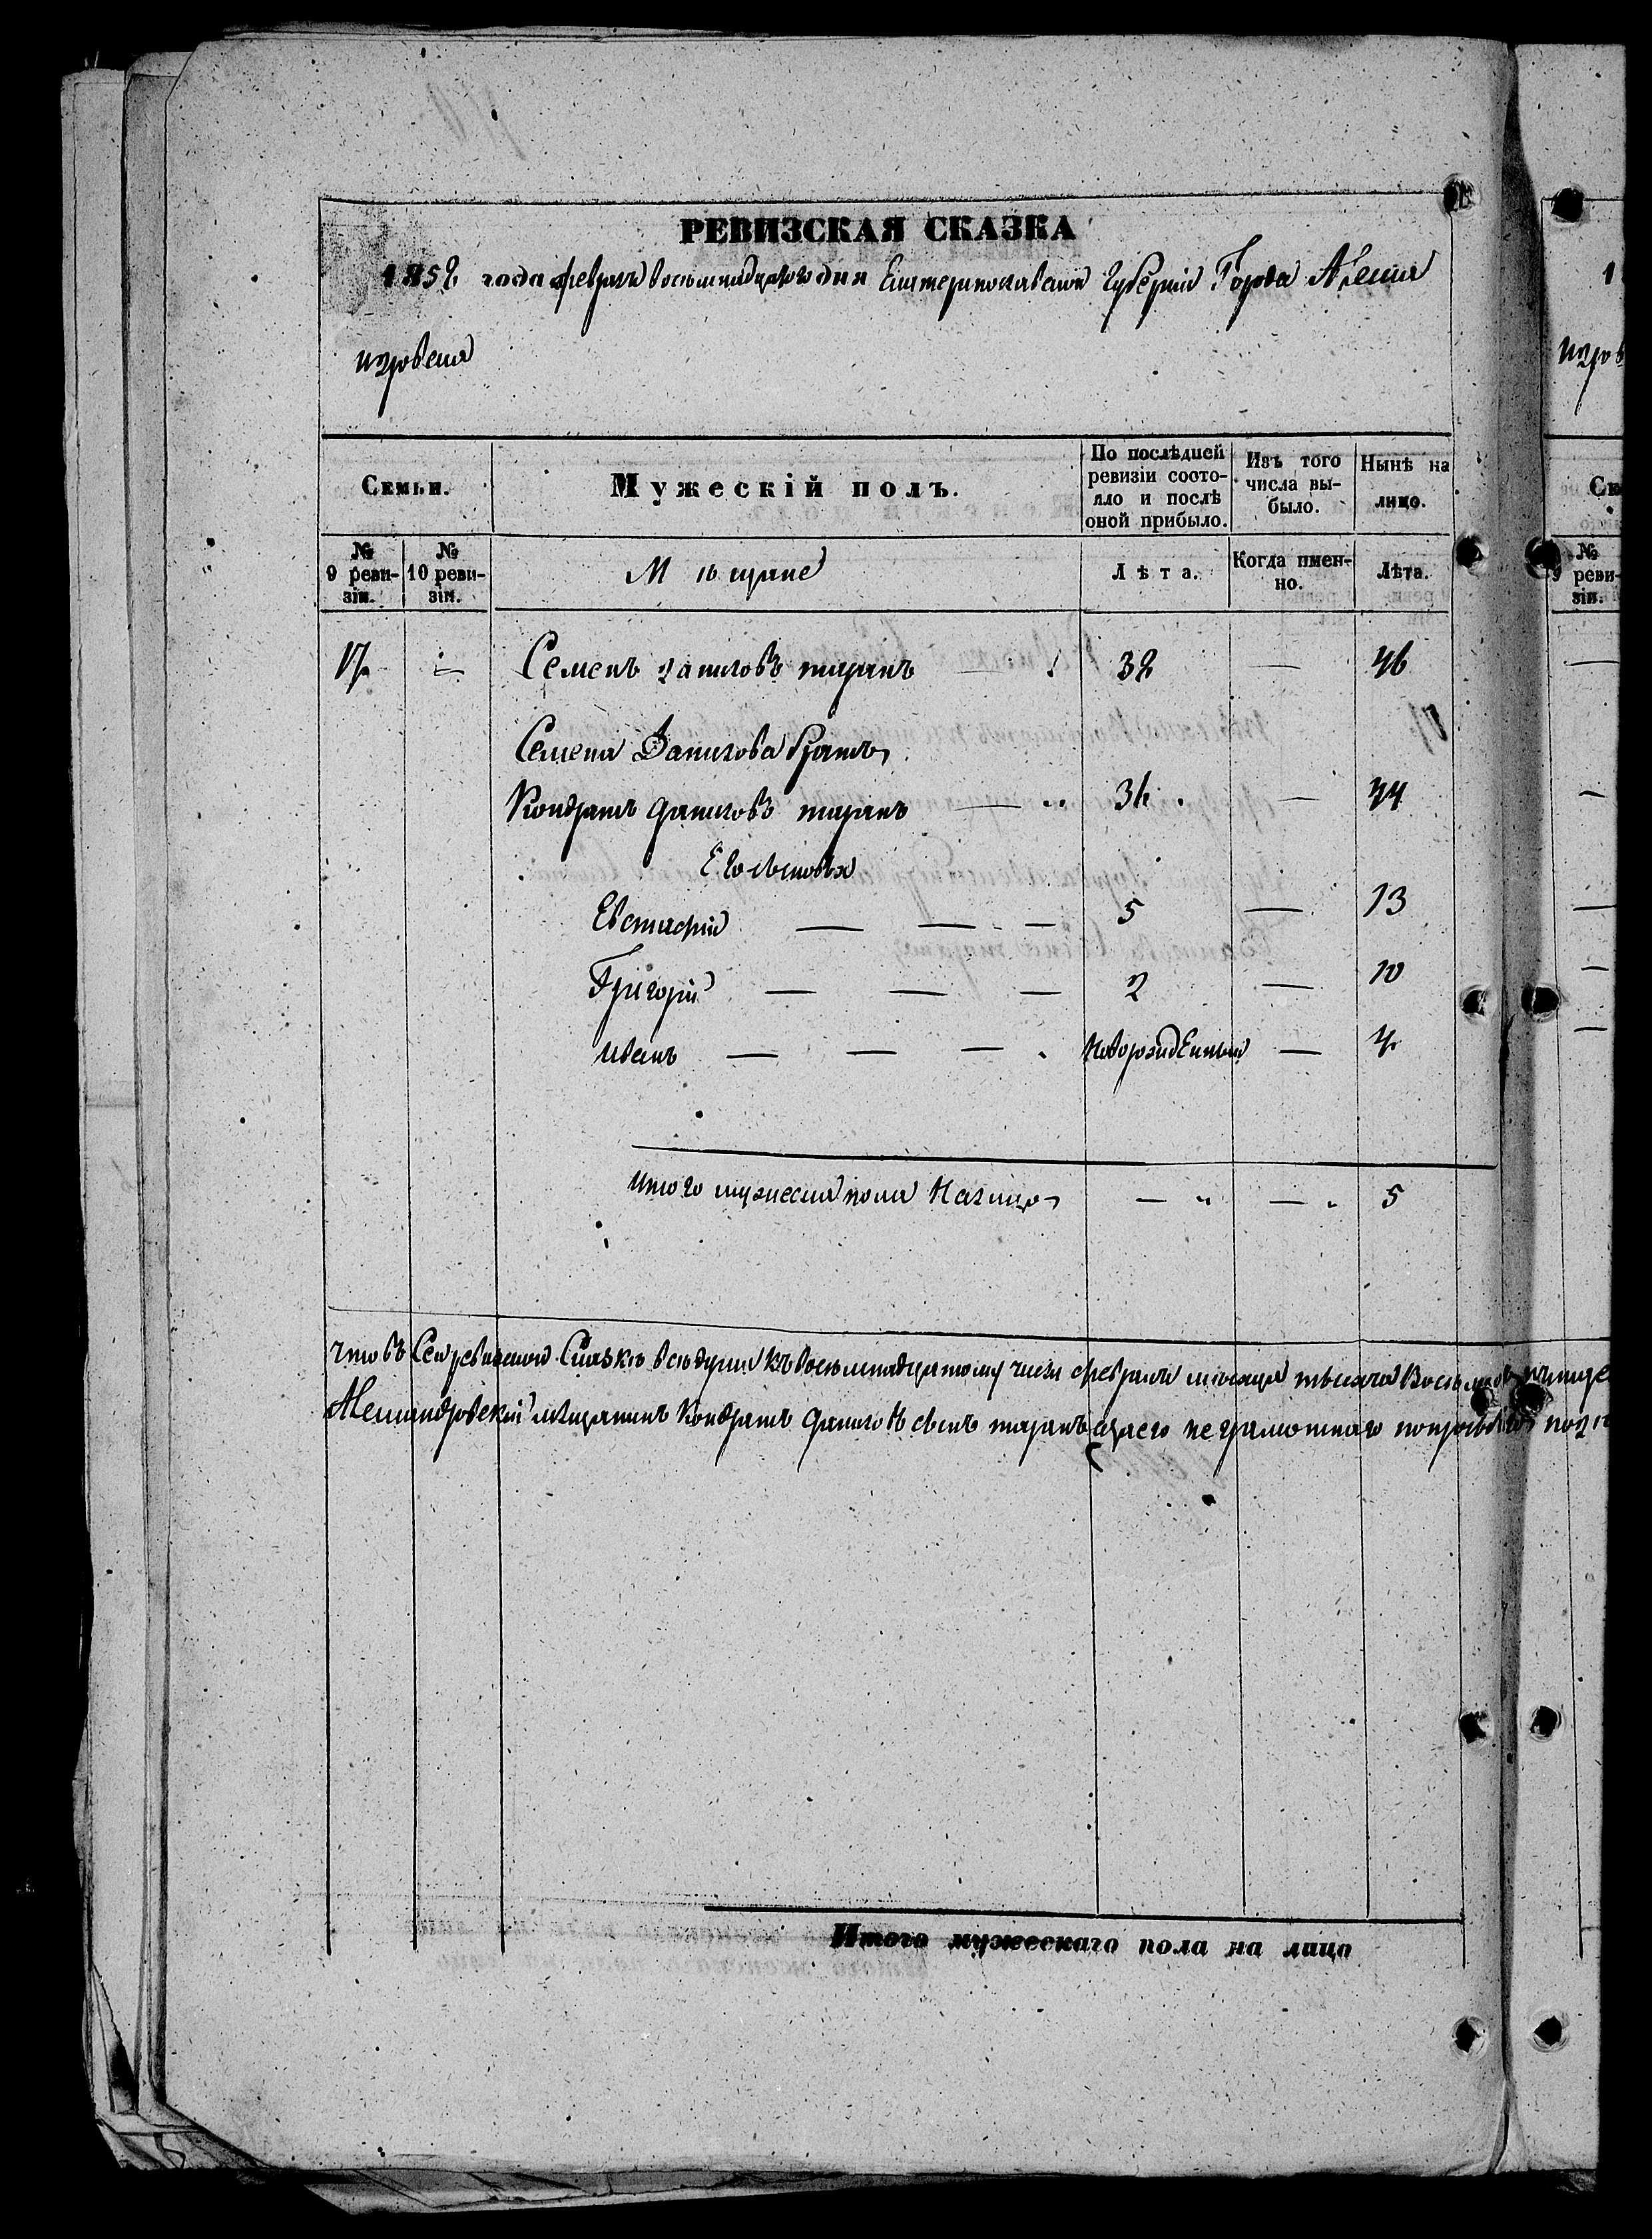 РЕВИЗСКАЯ СКАЗКА
1858 года февраля восемнадцатого дня Екатеринославской Губерніи Города Алекса
ндровска
Семьи.
Мужескій полъ.
По послѣдней ревизіи состояло и послѣ оной прибыло.
Изъ того числа выбыло.
Нынѣ на лицо.
№ 9 ревизіи.
№ 10 ревизіи.
Мѣщане
Лѣта.
Когда именно.
Лѣта.
Семенъ Даниловъ таранъ 38 — 46
Семена Данилова братъ
Кондратъ даниловъ таранъ — 36 — 44
Его сыновья
Евстафій — — — 5 — 13
Григорій — — — 2 — 10
иванъ — — — новорожденный —
Итого мужеска пола На лицо — — 5
Что въ Сей ревизской Сказкѣ всѣ души къ восемнадцатому числу февраля месяца тысяча Восемьсотъ
Александровскій мѣщанинъ Кондратъ данилов сынъ таранъ а за его не грамотнаго
Итого мужескаго пола на лицо